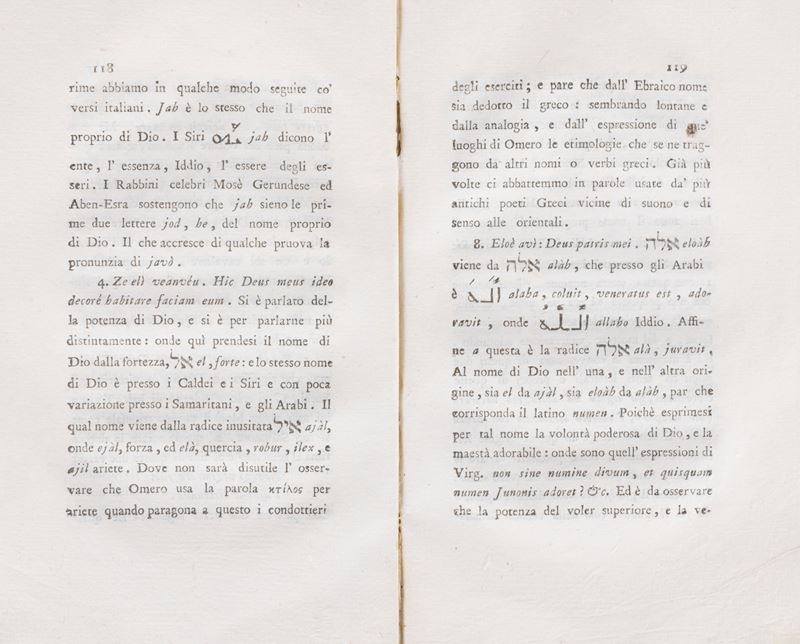 118
rime abbiamo in qualche modo seguite co'
versi italiani. Jah è lo stesso che il nome
proprio di Dio. I Siri jah dicono l'
ente, l' essenza, Iddio, l' essere degli es-
seri. I Rabbini celebri Mosè Gerundese ed
Aben-Esra sostengono che jah sieno le pri-
me due lettere jod, he, del nome proprio
di Dio. Il che accresce di qualche pruova la
pronunzia di javò.
4. Ze elì veanvéu. Hic Deus meus ideo
decoré habitare faciam eum. Si è parlato del-
la potenza di Dio, e si è per parlarne più
distintamente: onde quì prendesi il nome di
Dio dalla fortezza, אל el, forte: e lo stesso nome
di Dio è presso i Caldei e i Siri e con poca
variazione presso i Samaritani, e gli Arabi. Il
qual nome viene dalla radice inusitata איל ajàl,
onde ejàl, forza, ed elà, quercia, robur, ilex, e
ajil ariete. Dove non sarà disutile l' osser-
vare che Omero usa la parola κτίλος per
ariete quando paragona a questo i condottieri
119
degli eserciti; e pare che dall' Ebraico nome
sia dedotto il greco: sembrando lontane e
dalla analogia, e dall' espressione di que'
luoghi di Omero le etimologie che se ne trag-
gono da altri nomi o verbi greci. Già più
volte ci abbattemmo in parole usate da' più
antichi poeti Greci vicine di suono e di
senso alle orientali.
8. Eloè avì: Deus patris mei. אלה eloàh
viene da אלה alàh, che presso gli Arabi
è اله alaha, coluit, veneratus est, ado-
ravit, onde الله allaho Iddio. Affi-
ne a questa è la radice אלה alà, juravit.
Al nome di Dio nell' una, e nell' altra ori-
gine, sia el da ajàl, sia eloàh da alàh, par che
corrisponda il latino numen. Poichè esprimesi
per tal nome la volontà poderosa di Dio, e la
maestà adorabile: onde sono quell' espressioni di
Virg. non sine numine divum, et quisquam
numen Junonis adoret? &c. Ed è da osservare
che la potenza del voler superiore, e la ve-